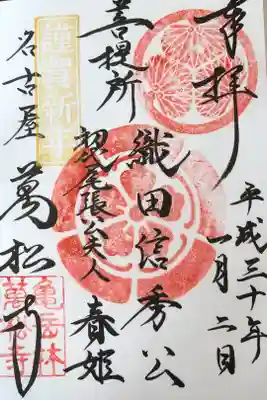 奉拝
平成三十年
一月二日
織田信秀公
菩提所
尾張公夫人 春姫
謹賀新年
名古屋 萬松寺
亀岳林
萬松寺